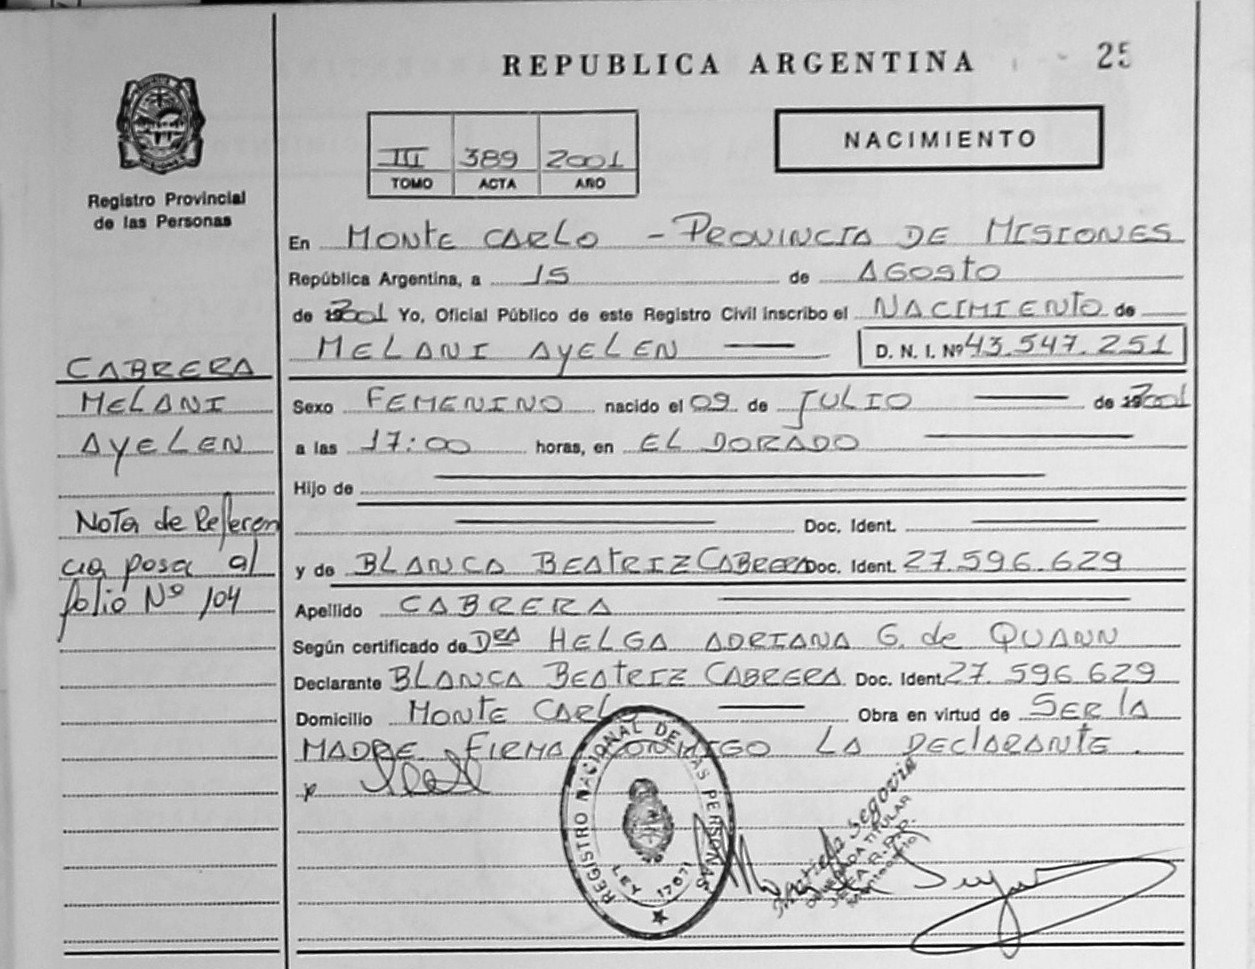 REPUBLICA ARGENTINA 25
Registro Provincial
de las Personas
III 389 2001
TOMO ACTA AÑO
NACIMIENTO
En MONTE CARLO - PROVINCIA DE MISIONES
República Argentina, a 15 de AGOSTO
de 2001 Yo, Oficial Público de este Registro Civil inscribo el NACIMIENTO de
MELANI AYELEN D. N. I. Nº 43.547.251
Sexo FEMENINO nacido el 09 de JULIO de 2001
a las 17:00 horas, en EL DORADO
Hijo de
Doc. Ident.
y de BLANCA BEATRIZ CABRERA Doc. Ident. 27.596.629
Apellido CABRERA
Según certificado de DRA HELGA ADRIANA G. de QUANN
Declarante BLANCA BEATRIZ CABRERA Doc. Ident. 27.596 629
Domicilio MONTE CARLO Obra en virtud de SER LA
MADRE. FIRMA CONMIGO LA DECLARANTE.
CABRERA
MELANI
AYELEN
Nota de Referen
cia pasa al
folio Nº 104
REGISTRO NACIONAL DE LAS PERSONAS
LEY 17671
Segovia
DELEGADA TITULAR
JEFA R.P.P.
Montecarlo